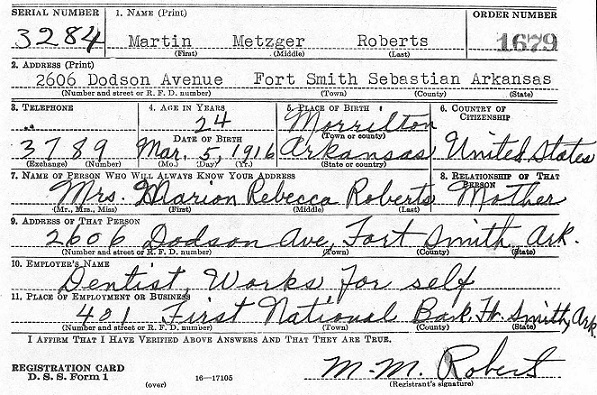 SERIAL NUMBER 1. NAME (Print) ORDER NUMBER
3284 Martin Metzger Roberts 1679
(First) (Middle) (Last)
2. ADDRESS (Print)
2606 Dodson Avenue Fort Smith Sebastian Arkansas
(Number and street or R. F. D. number) (Town) (County) (State)
3. TELEPHONE 4. AGE IN YEARS 5. PLACE OF BIRTH 6. COUNTRY OF CITIZENSHIP
24 Morrilton
DATE OF BIRTH (Town or county)
3789 Mar. 5, 1916 Arkansas United States
(Exchange) (Number) (Mo.) (Day.) (Yr.) (State or country)
7. NAME OF PERSON WHO WILL ALWAYS KNOW YOUR ADDRESS 8. RELATIONSHIP OF THAT PERSON
Mrs. Marion Rebecca Roberts Mother
(Mr., Mrs., Miss) (First) (Middle) (Last)
9. ADDRESS OF THAT PERSON
2606 Dodson Ave, Fort Smith, Ark.
(Number and street or R. F. D. number) (Town) (County) (State)
10. EMPLOYER'S NAME
Dentist, Works for self
11. PLACE OF EMPLOYMENT OR BUSINESS
401 First National Bank Ft. Smith, Ark.
(Number and street or R. F. D. number) (Town) (County) (State)
I AFFIRM THAT I HAVE VERIFIED ABOVE ANSWERS AND THAT THEY ARE TRUE.
REGISTRATION CARD M. M. Robert
D. S. S. Form 1 (over) 16—17105 (Registrant's signature)